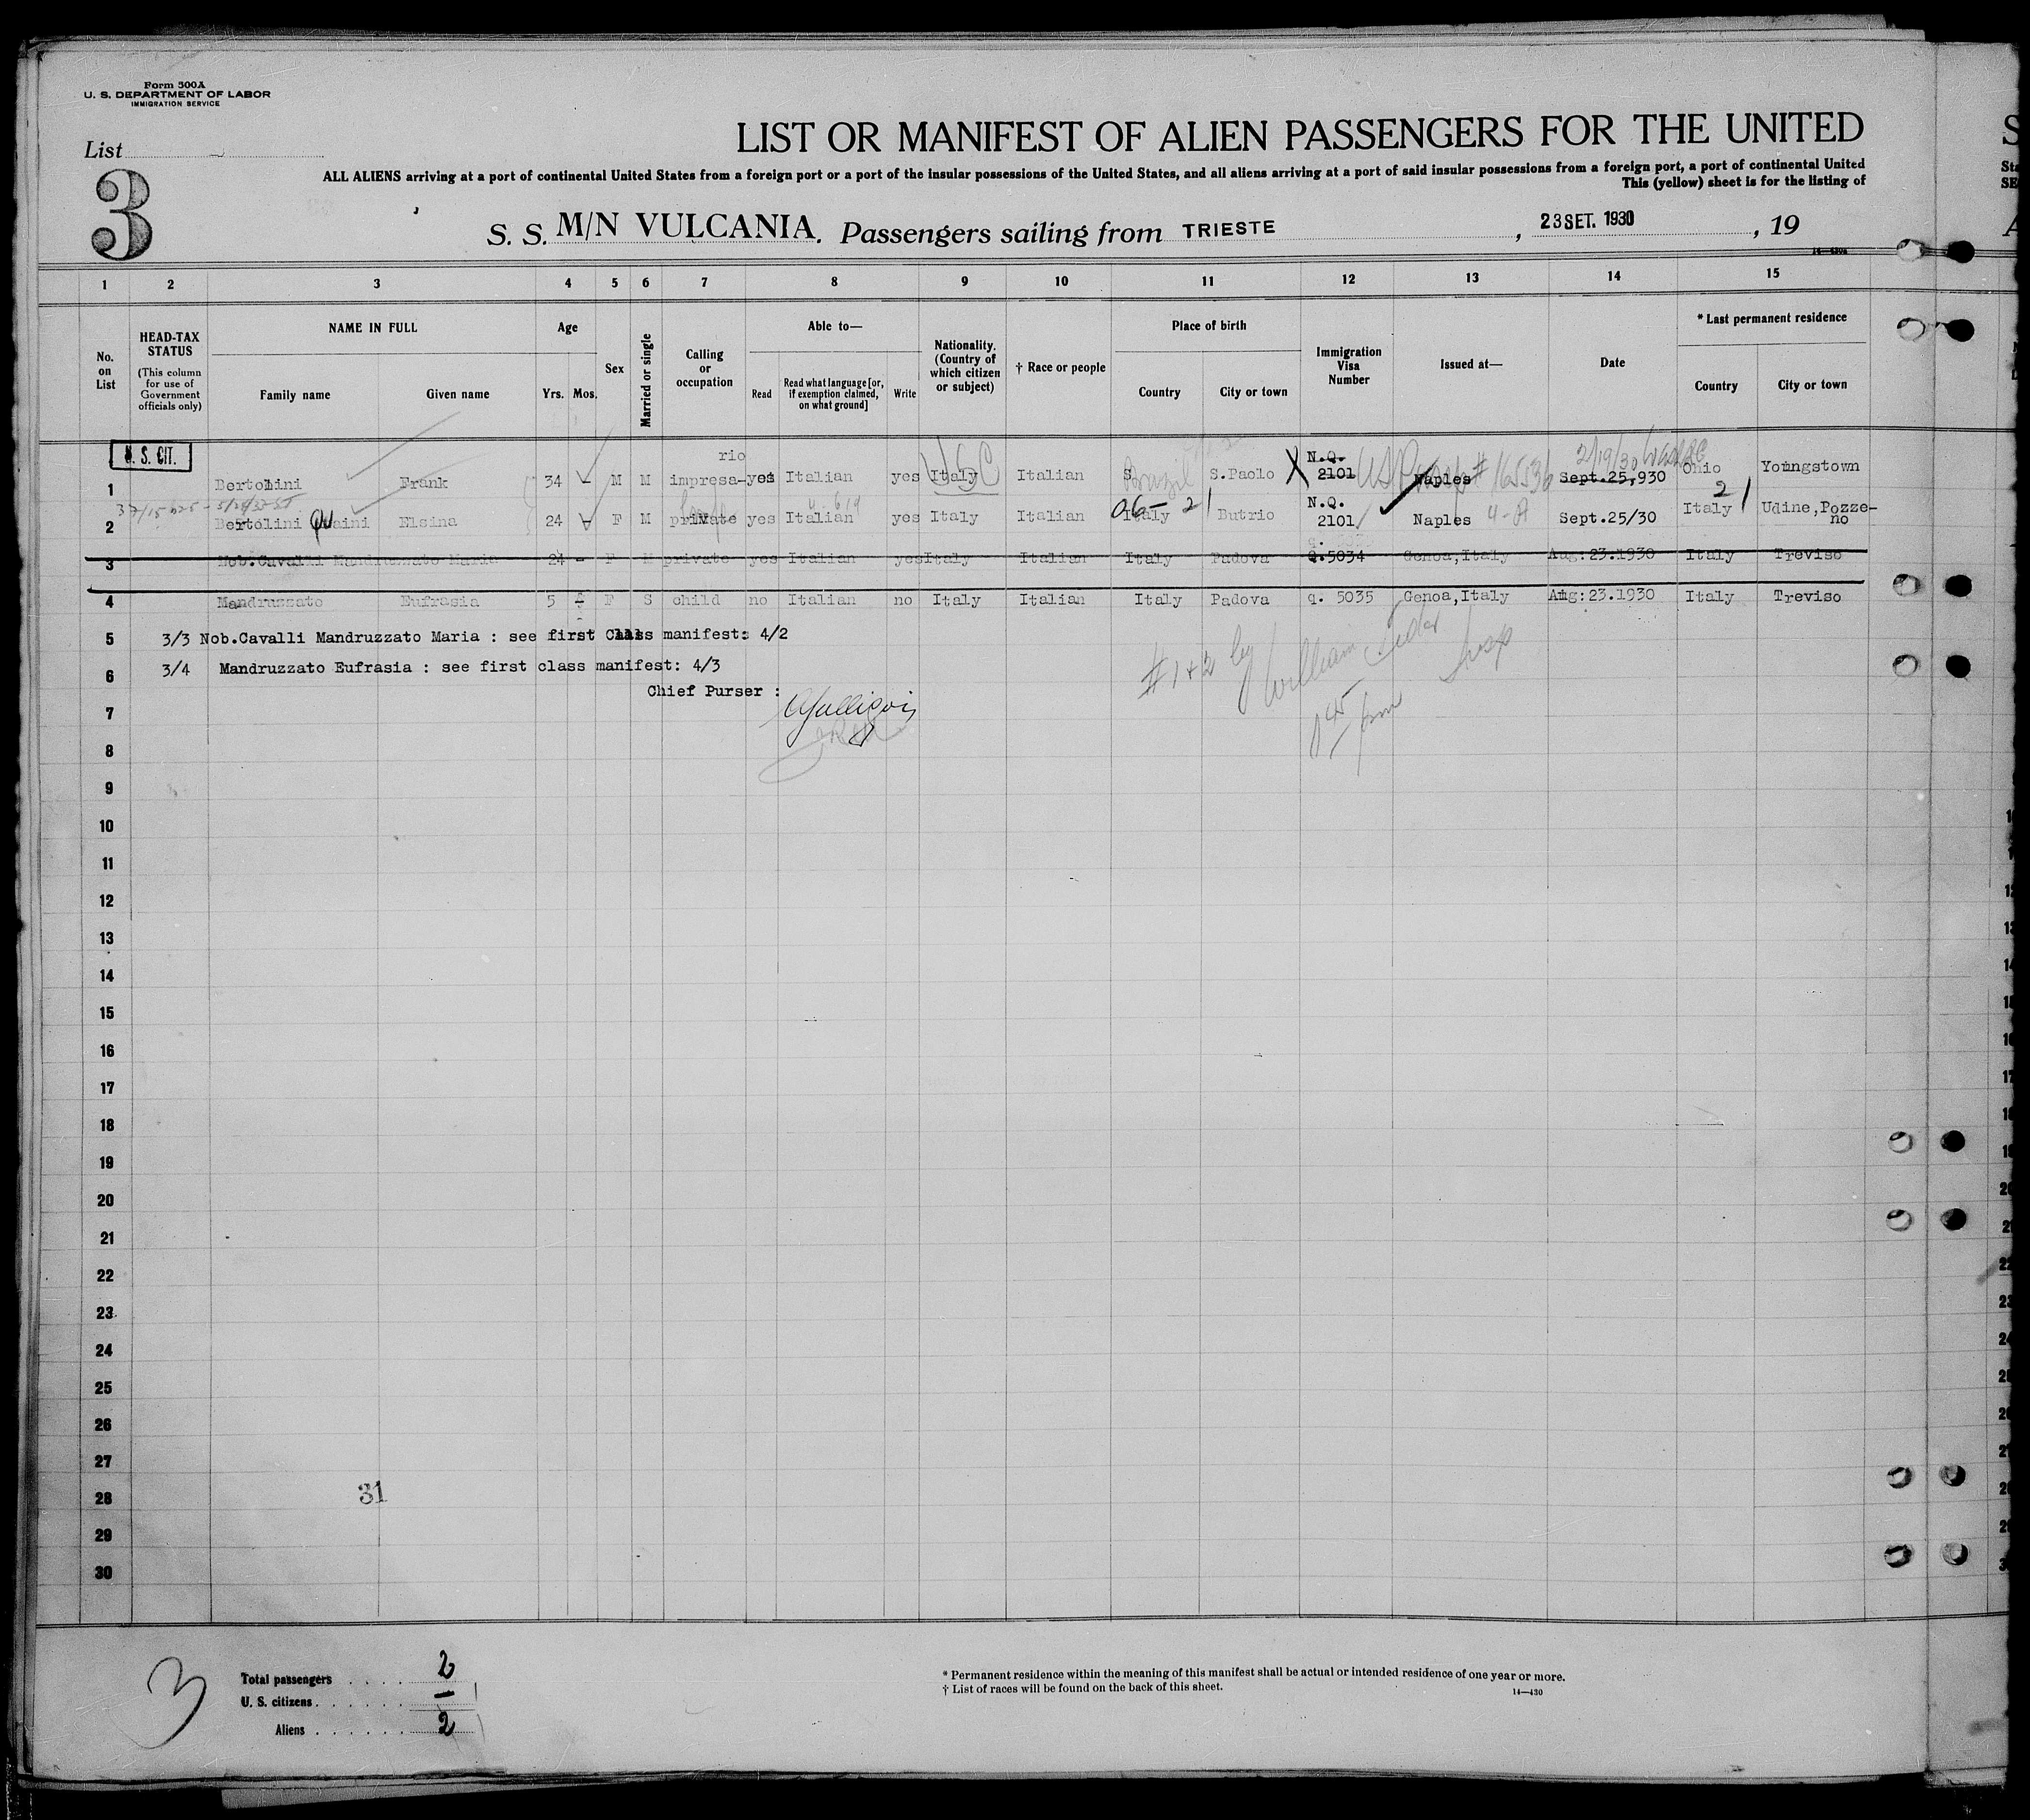 Form 500A
U. S. DEPARTMENT OF LABOR
IMMIGRATION SERVICE
List
3
LIST OR MANIFEST OF ALIEN PASSENGERS FOR THE UNITED
ALL ALIENS arriving at a port of continental United States from a foreign port or a port of the insular possessions of the United States, and all aliens arriving at a port of said insular possessions from a foreign port, a port of continental United
This (yellow) sheet is for the listing of
S. S. M/N VULCANIA. Passengers sailing from TRIESTE, 23 SET. 1930, 19
14—430a
1 2 3 4 5 6 7 8 9 10 11 12 13 14 15
No. on List
HEAD-TAX STATUS
(This column for use of Government officials only)
NAME IN FULL
Family name Given name
Age
Yrs. Mos.
Sex
Married or single
Calling or occupation
Able to—
Read
Read what language [or, if exemption claimed, on what ground]
Write
Nationality. (Country of which citizen or subject)
† Race or people
Place of birth
Country City or town
Immigration Visa Number
Issued at—
Date
* Last permanent residence
Country City or town
U. S. CIT.
1 Bertolini Frank 34 M M impresa-rio yes Italian yes Italy USC Italian S. Brazil S.Paolo X N.Q. 2101 Naples # 165536 Sept.25,930 2/19/30 Ohio Youngstown
2 Bertolini Quaini Elsina 24 F M private yes Italian yes Italy Italian Italy Butrio N.Q. 2101 Naples Sept.25/30 Italy Udine,Pozze-no
3 Nob.Cavalli Mandruzzato Maria 24 - F M private yes Italian yes Italy Italian Italy Padova Q.5034 Genoa,Italy Aug:23.1930 Italy Treviso
4 Mandruzzato Eufrasia 5 - F S child no Italian no Italy Italian Italy Padova q. 5035 Genoa,Italy Aug:23.1930 Italy Treviso
5 3/3 Nob.Cavalli Mandruzzato Maria : see first Class manifest: 4/2
6 3/4 Mandruzzato Eufrasia : see first class manifest: 4/3
#1+2 by William
Chief Purser :
7
8
9
10
11
12
13
14
15
16
17
18
19
20
21
22
23
24
25
26
27
28 31
29
30
3
Total passengers . . . . 2
U. S. citizens . . . . . —
Aliens . . . . . . 2
* Permanent residence within the meaning of this manifest shall be actual or intended residence of one year or more.
† List of races will be found on the back of this sheet.
14—430